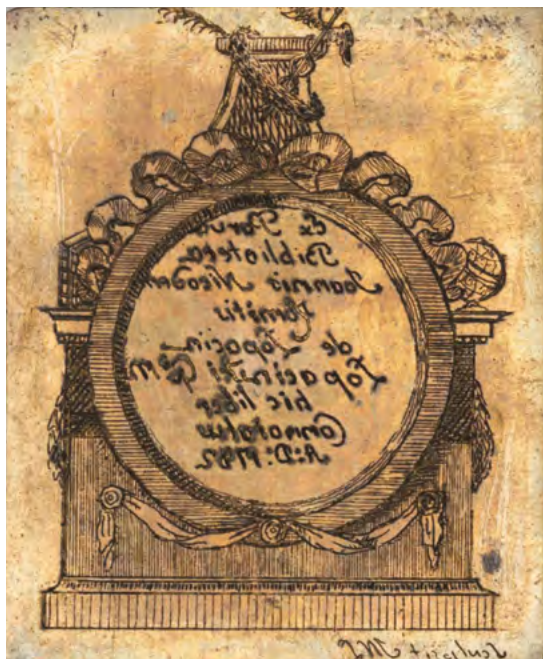 Ex Parva
Biblioteca
Joannis Nicodem
Comitis
de Łopacin
Łopacinski
hic liber
Connotatus
A:D:1782
Sculpsit